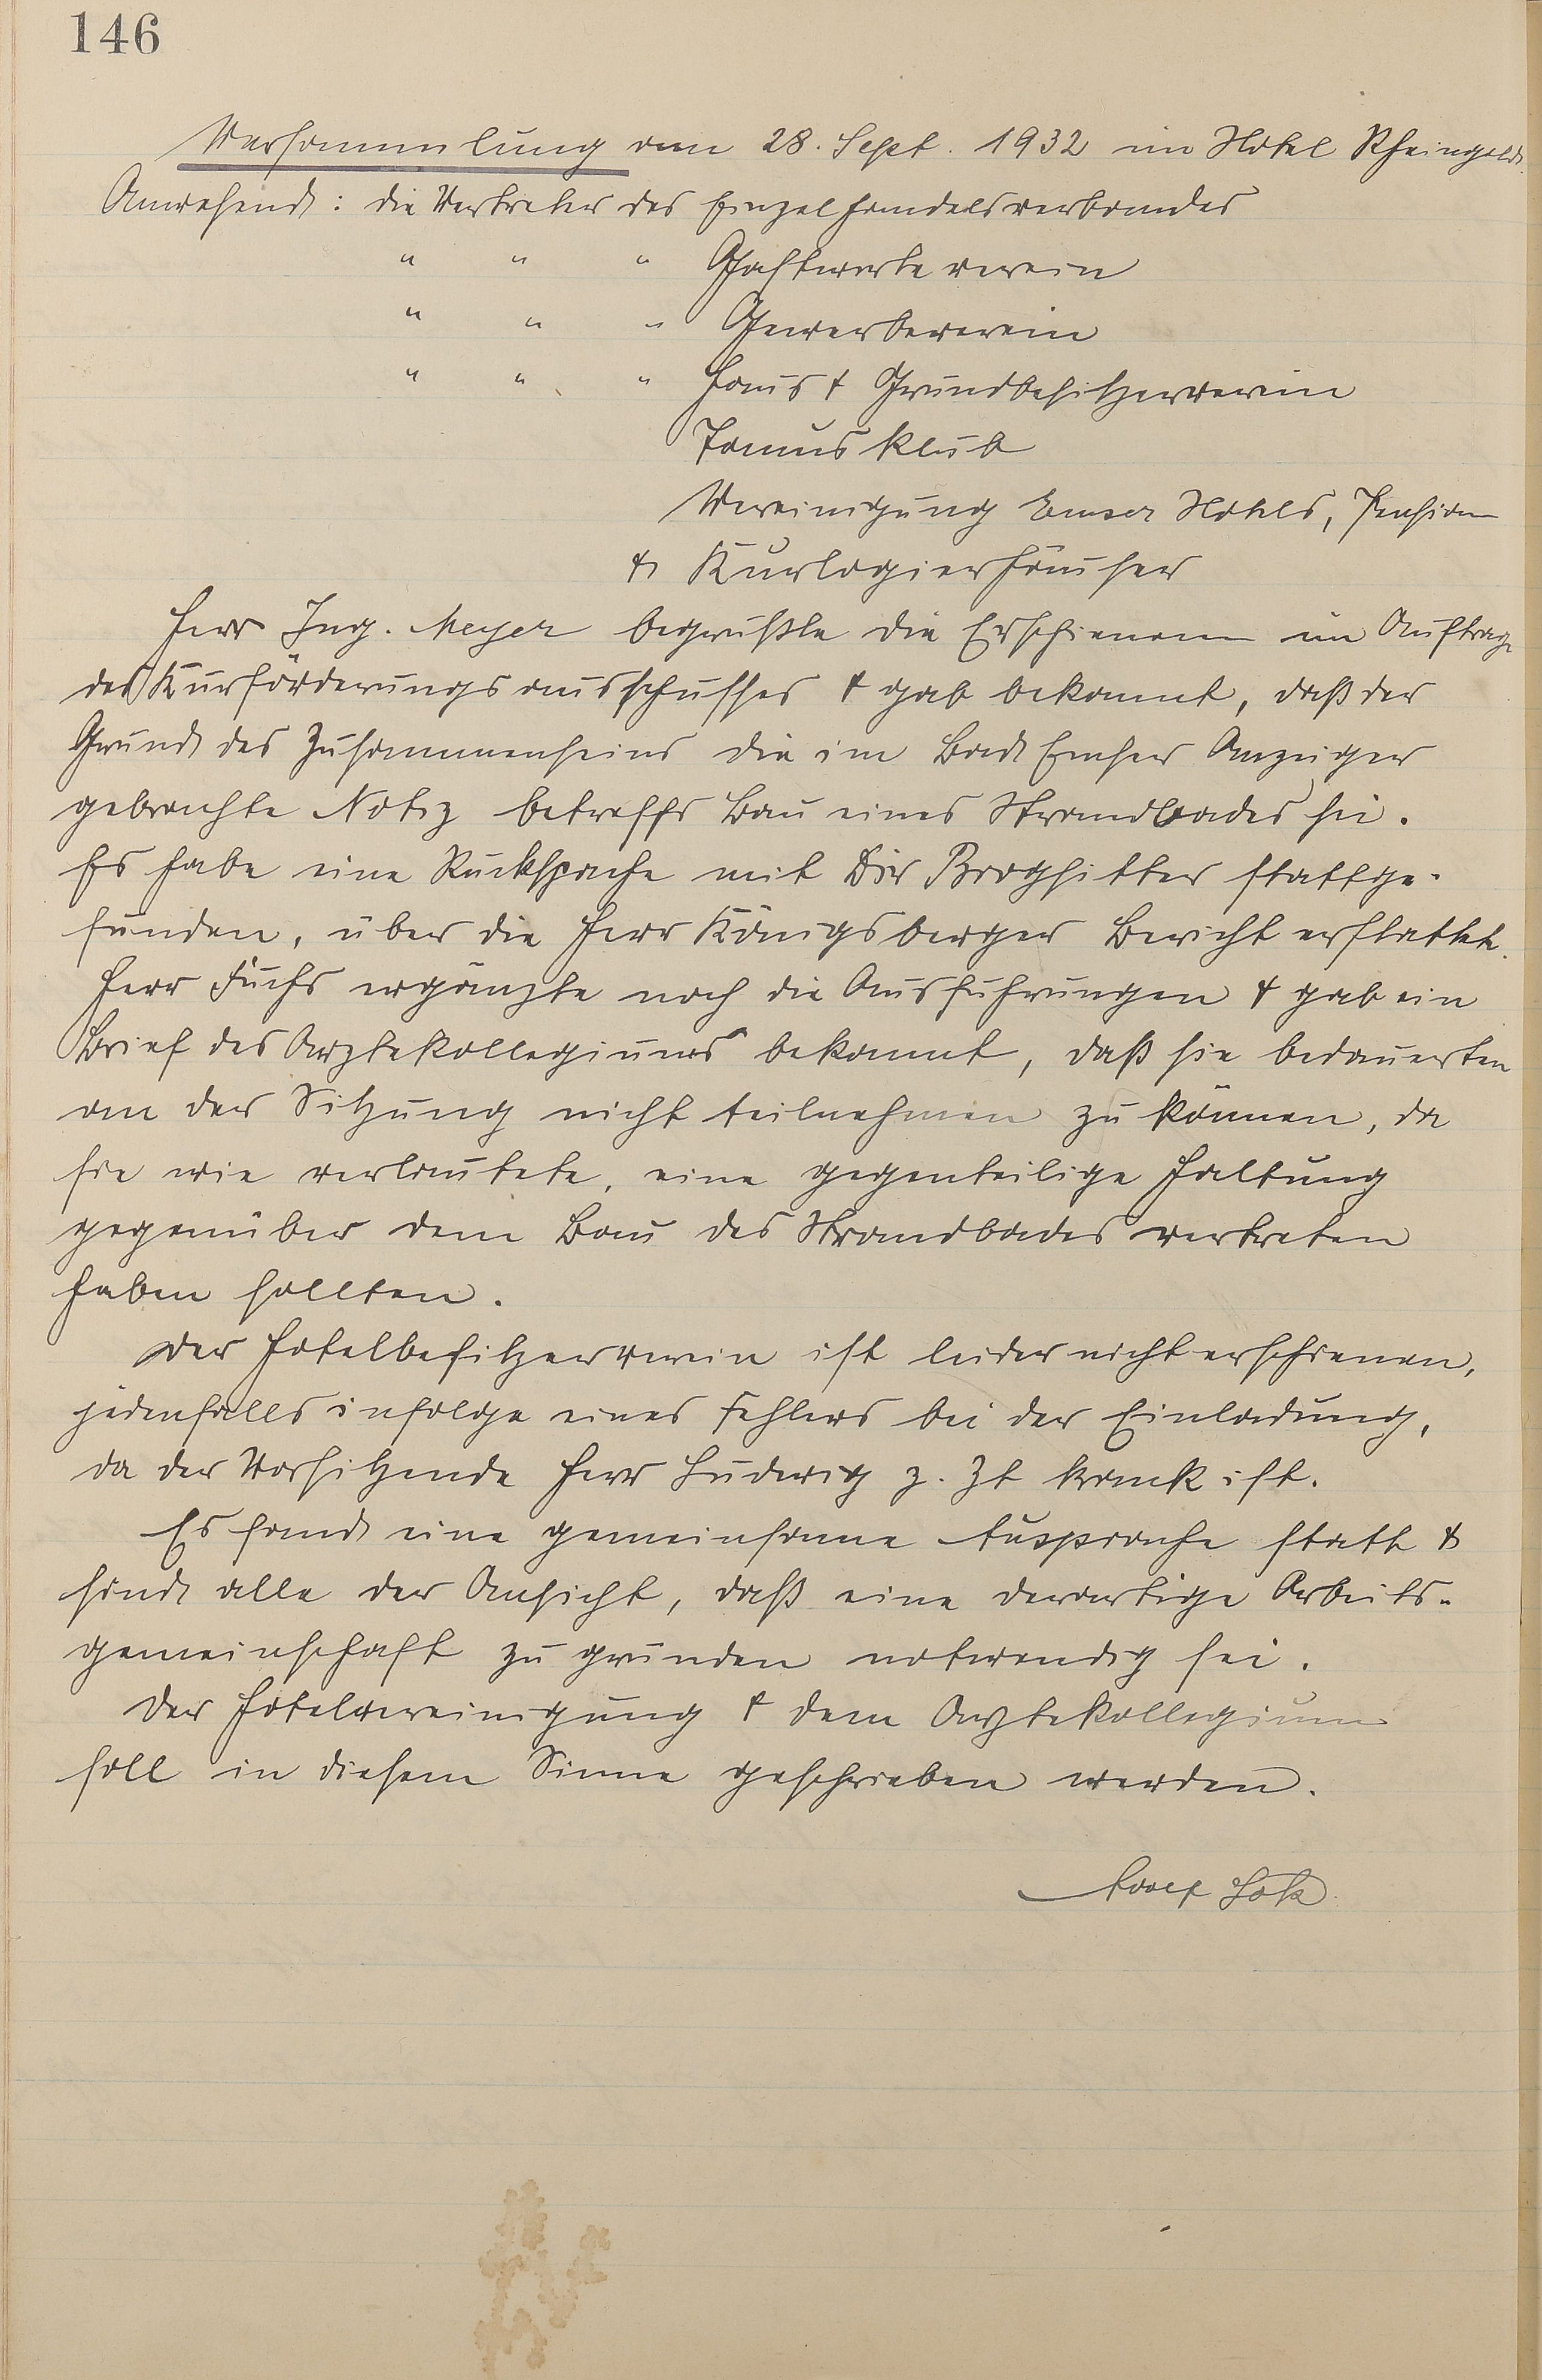 146
Versammlung am 28. Sept. 1932 im Hotel Rheingold.
Anwesend: die Vertreter des Einzelhandelsverbandes
" " " Gastwirteverein
" " " Gewerbeverein
" " " Haus & Grundbesitzerverein
Taunusklub
Vereinigung Emser Hotels, Pension
& Kurlogierhäuser
Herr Ing. Meyer begrüßte die Erschienenen im Auftrage
des Kurförderungsausschusses & gab bekannt, daß der
Grund des Zusammenseins die im Bad Emser Anzeiger
gebrachte Notiz betreffs Bau eines Strandbades sei.
Es habe eine Rücksprache mit Dir Brogsitter stattge-
funden, über die Herr Königsberger Bericht erstattet.
Herr Fuchs ergänzte noch die Ausführungen & gab ein
Brief des Arztekollegiums bekannt, daß sie bedauerten
an der Sitzung nicht teilnehmen zu können, da
sie wie verlautete, eine gegenteilige Haltung
gegenüber dem Bau des Strandbades vertreten
haben sollten.
Der Hotelbesitzerverein ist leider nicht erschienen,
jedenfalls infolge eines Fehlers bei der Einladung,
da der Vorsitzende Herr Ludwig z. Zt krank ist.
Es fand eine gemeinsame Ausprache statt &
sind alle der Ansicht, daß eine derartige Arbeits-
gemeinschaft zu gründen notwendig sei.
Der Hotelvereinigung & dem Arztekollegium
soll in diesem Sinne geschrieben werden.
Adolf